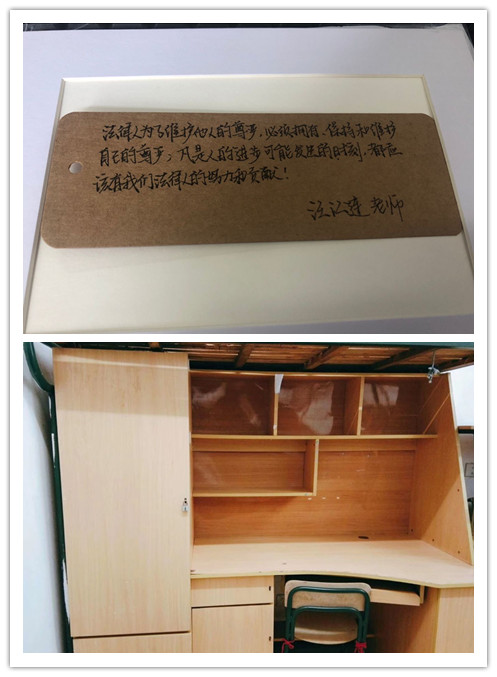 法律人为了维护他人的尊严，必须拥有、保持和维护
自己的尊严；凡是人的进步可能发生的时刻，都应
该有我们法律人的努力和贡献！
汪江莲老师